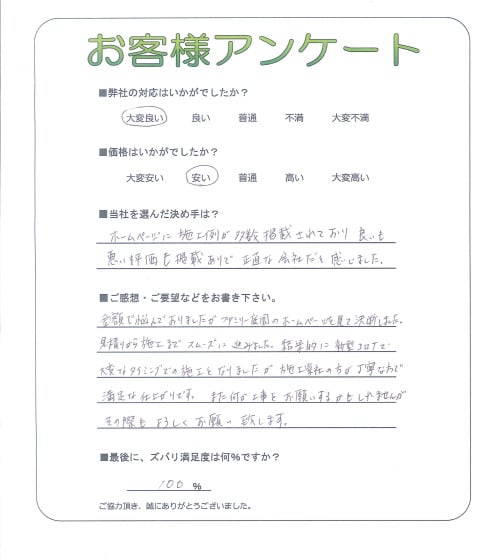 お客様アンケート
■弊社の対応はいかがでしたか？
大変良い 良い 普通 不満 大変不満
■価格はいかがでしたか？
大変安い 安い 普通 高い 大変高い
■当社を選んだ決め手は？
ホームページに施工例が多数掲載されており 良いも
悪い評価も掲載ありで 正直な会社だと感じました。
■ご感想・ご要望などをお書き下さい。
金額で悩んでおりましたがファミリー庭園のホームページを見て決断しました。
見積りから施工までスムーズに進みました。結果的に新型コロナで
大変なタイミングでの施工となりましたが 施工業社の方が丁寧なわで
満足な仕上がりです。また何か工事をお願いするかもしれませんが
その際もよろしくお願い致します。
■最後に、ズバリ満足度は何%ですか？
100 %
ご協力頂き、誠にありがとうございました。